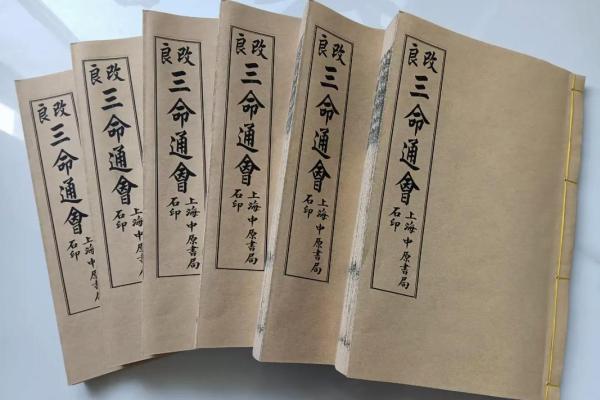 改良
三命通會
上海中原書局
石印
改良
三命通會
上海中原書局
石印
改良
三命通會
上海中原書局
石印
改良
三命通會
上海中原書局
石印
改良
三命通會
上海中原書局
石印
改良
三命通會
上海中原書局
石印